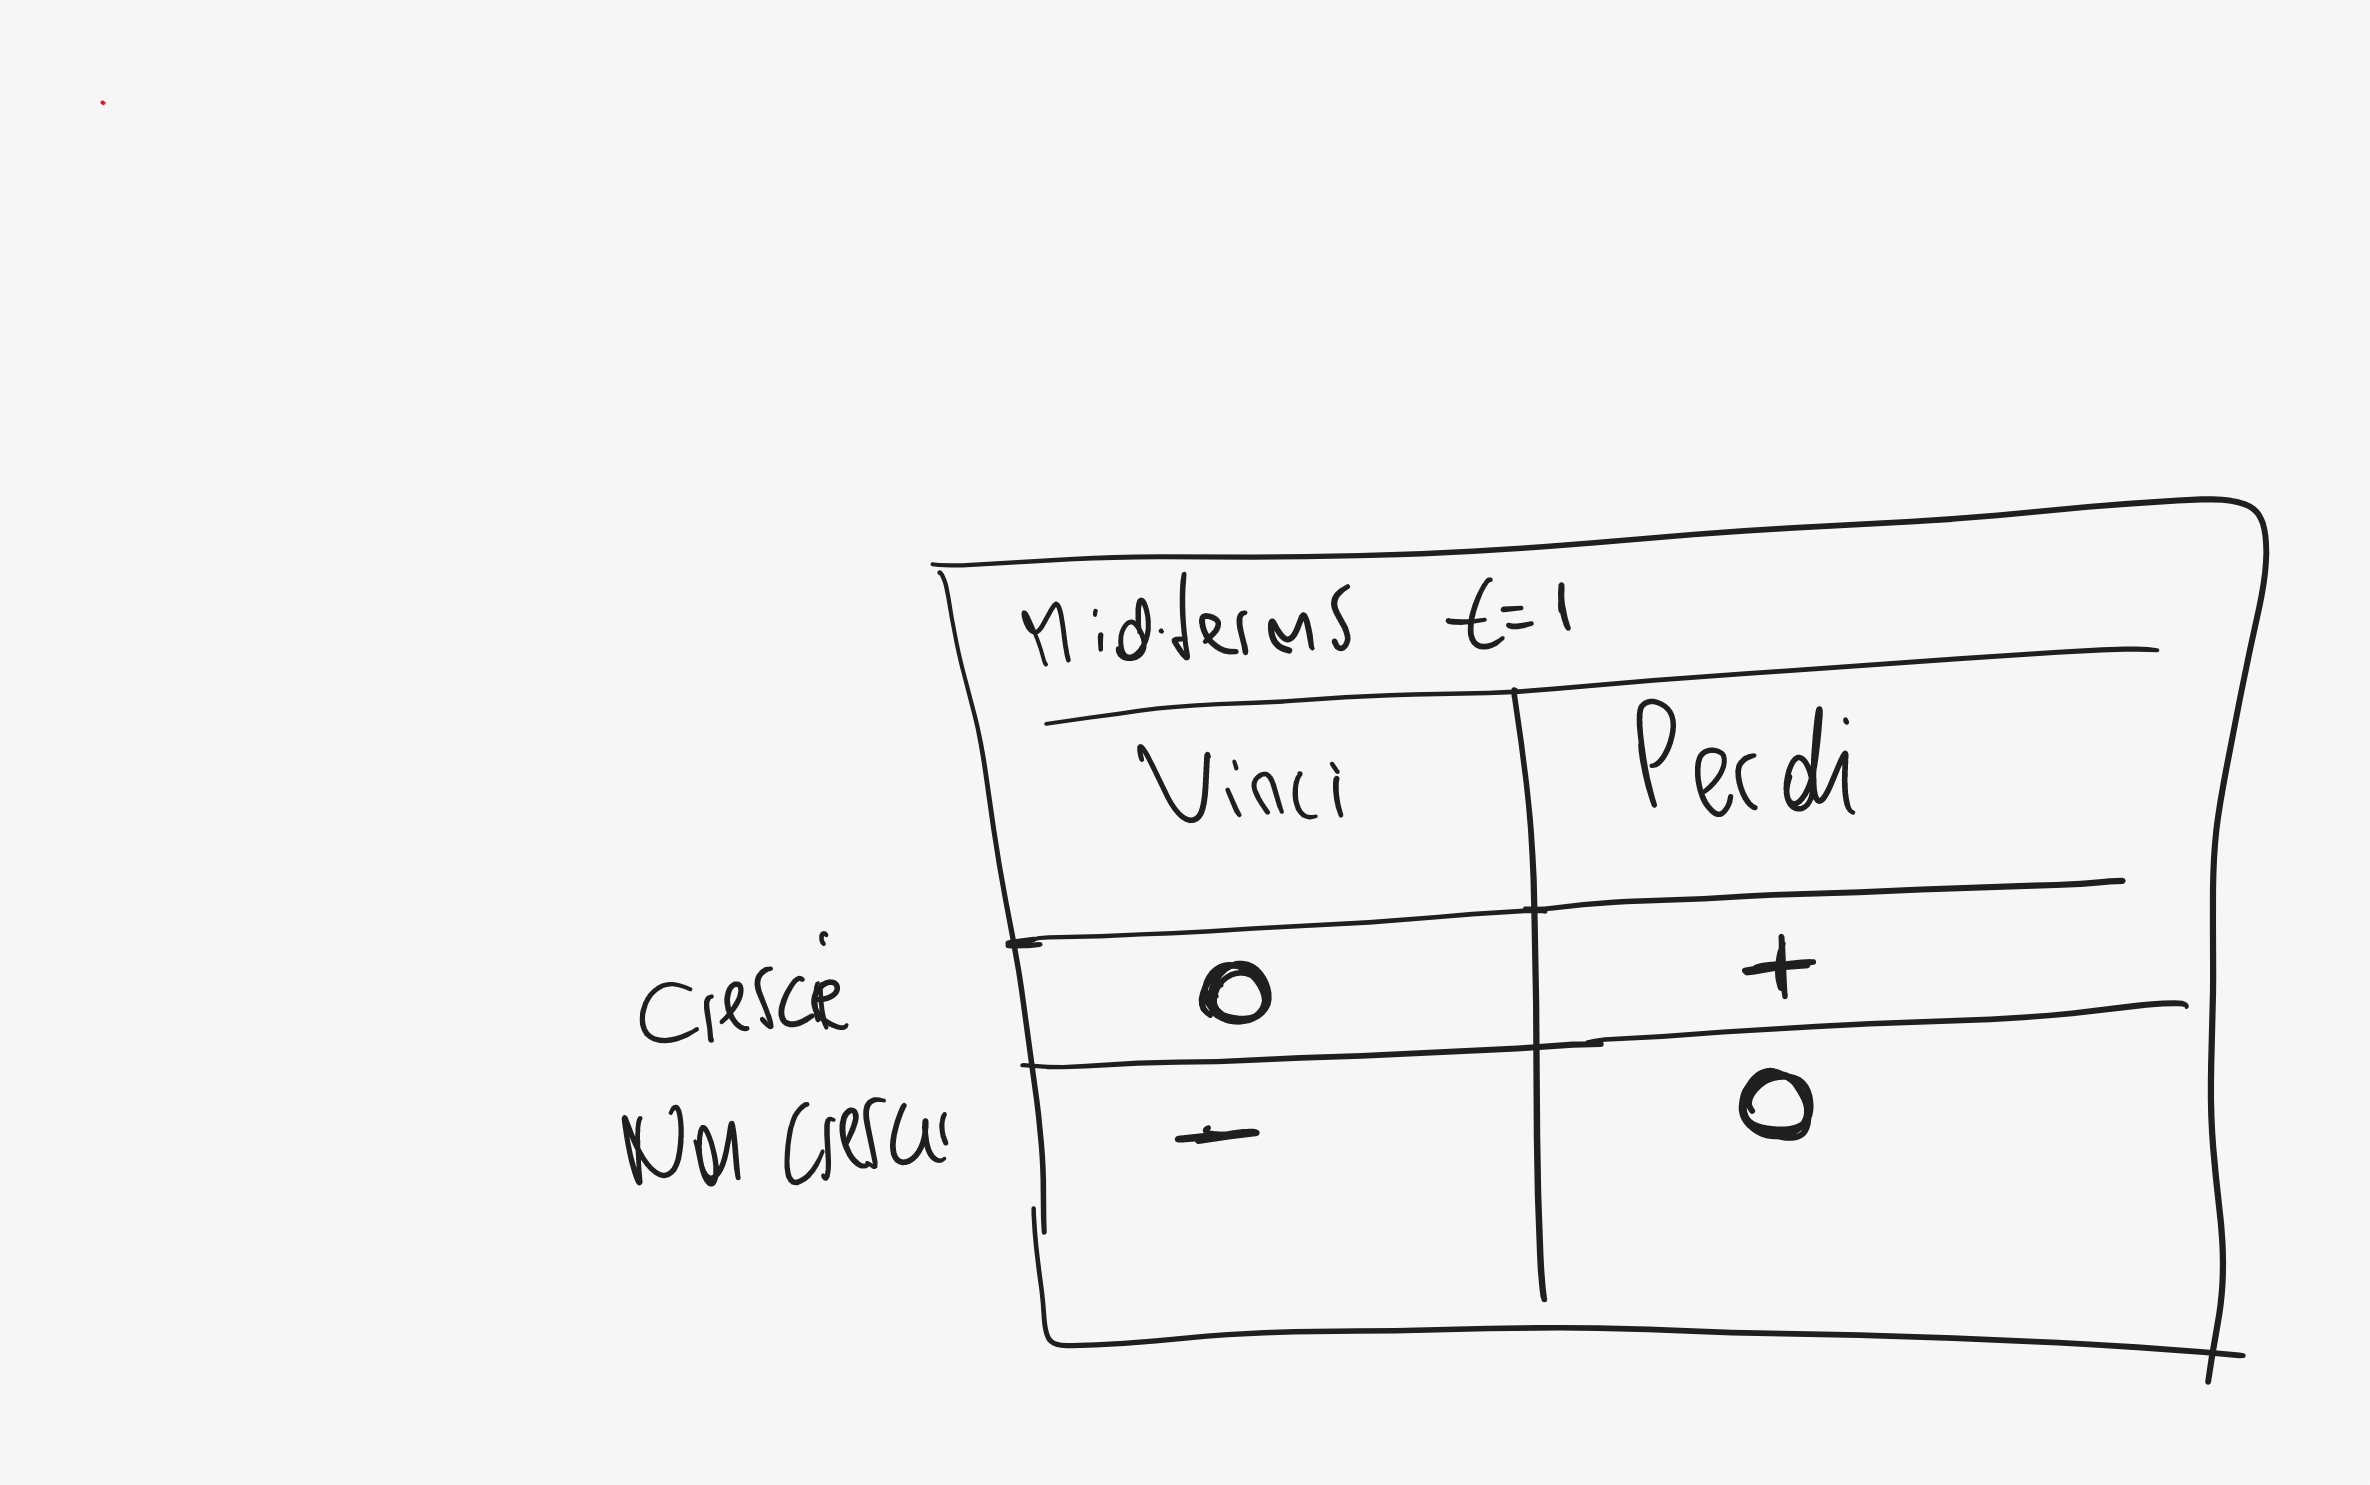 Midterms t=1
Vinci Perdi
Cresce O +
Non Cresce - O